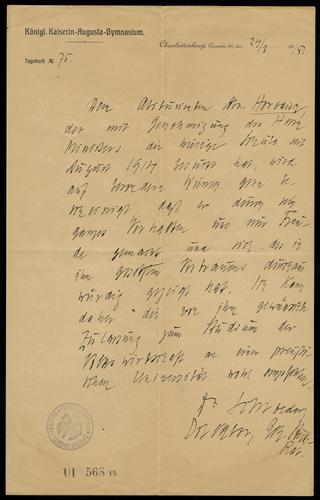 Königl. Kaiserin-Augusta-Gymnasium.
Charlottenburg, den 24/3 1915.
Tagebuch № 75.
Dem Abiturienten
der mit Genehmigung des Herrn
Ministers die hiesige Schule seit
August 1914 besucht hat, wird
auf besonderen Wunsch gern be
scheinigt, daß er durch sein
ganzes Verhalten uns nur Freu
de gemacht und sich des in
ihn gesetzten Vertrauens durchaus
würdig gezeigt hat. Ich kann
daher die von ihm gewünschte
Zulassung zum Studium der
Volkswirtschaft an einer preußi
schen Universität warm empfehlen.
Dr.
Direktor, Geh.
Rat.
UI 568 15